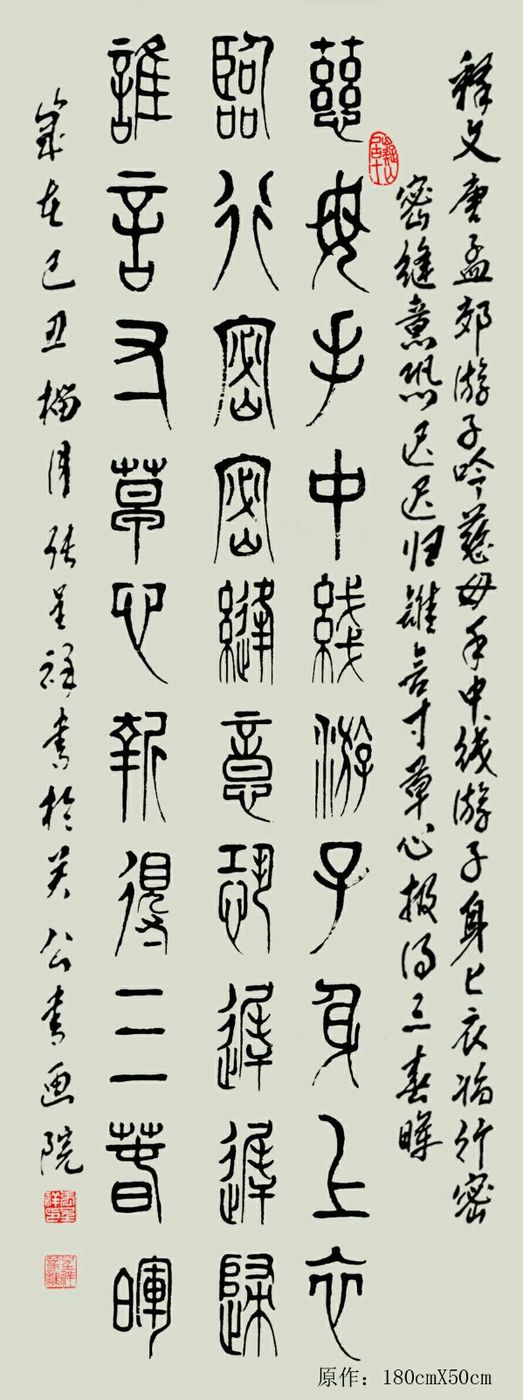 释文唐孟郊游子吟慈母手中线游子身上衣临行密
密缝意恐迟迟归誰言寸草心报得三春晖
慈母手中綫游子身上衣
臨行密密縫意恐遲遲歸
誰言寸草心報得三春暉
歲在己丑榴月张呈祥書於关公書画院
原作：180cmX50cm